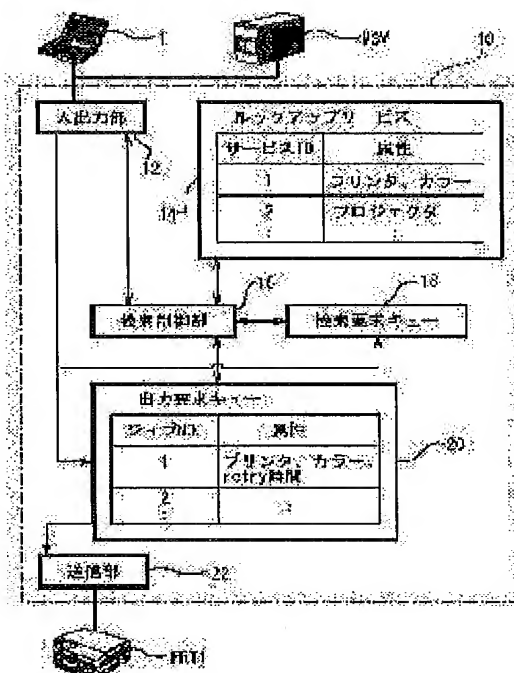 1
10
入出力部
12
ルックアップサービス
サービスID
属性
1
プリンタ、カラー
2
プロジェクタ
:
:
14
16
18
検索制御部
検索要求キュー
出力要求キュー
ジョブID
属性
1
プリンタ、カラー、
retry時間
2
:
:
20
送信部
22
PRT1